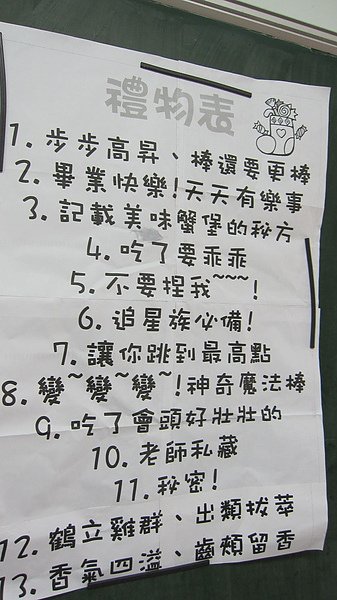 禮物表
1. 步步高昇、棒還要更棒
2. 畢業快樂!天天有樂事
3. 記載美味蟹堡的秘方
4. 吃了要乖乖
5. 不要捏我~~~!
6. 追星族必備!
7. 讓你跳到最高點
8. 變~變~變~!神奇魔法棒
9. 吃了會頭好壯壯的
10. 老師私藏
11. 秘密!
12. 鶴立雞群、出類拔萃
13. 香氣四溢、齒頰留香